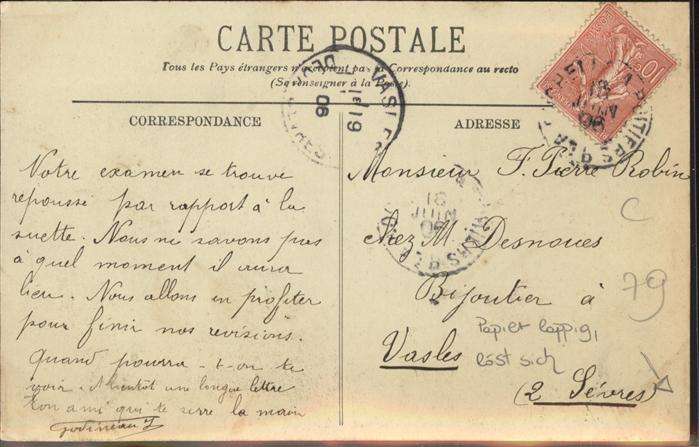 CARTE POSTALE
Tous les Pays étrangers n'acceptent pas la Correspondance au recto
(Se renseigner à la Poste).
CORRESPONDANCE
ADRESSE
Notre examen se trouve
repoussé par rapport à la
suette. Nous ne savons pas
à quel moment il aura
lieu. Nous allons en profiter
pour finir nos révisions.
Quand pourra-t-on te
voir. A bientôt une longue lettre
ton ami qui te serre la main
Monsieur F. Pierre Robin
chez M Desnoues
Bijoutier à
Vasles
(2 Sèvres)
C
79
Papier lappig,
löst sich
VASLES
1E 19
06
SÈVRES
10
18
JUIN
06
18
JUIN